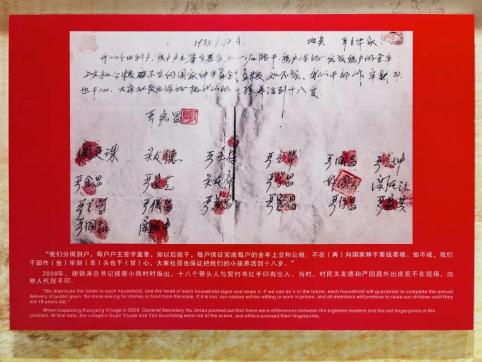 地点 严立华家
我们分田到户,每户户主签字盖章,如以后能干,每户保证完成每户的全年
上交和公粮不在向国家伸手要钱要粮,如不成,我们干部作牢刹头
也干心,大家社员也保证把我们的小孩养活到十八岁
严宏昌
关廷珠 关友德 严立华 严国昌 严立坤
严金昌 严家芝 关友江
“我们分田到户,每户户主签字盖章,如以后能干,每户保证完成每户的全年上交和公粮,不在(再)向国家伸手要钱要粮。如不成,我们
干部作(坐)牢刹(杀)头也干(甘)心,大家社员也保证把我们的小孩养活到十八岁。”
2008年,胡锦涛总书记视察小岗时时指出,十八个带头人与契约书红手印有出入。当时,村民关友德和严国昌外出逃荒不在现场,由
他人代按手印。
"We distribute the fields to each household, and the head of each household signs and seals it. If we can do it in the future, each household will guarantee to complete the annual
delivery of public grain. No more asking for money or food from the state. If it is not, our cadres will be willing to work in prison, and all members will promise to raise our children until they
are 18 years old."
When inspecting Xiaogang Village in 2008, General Secretary Hu Jintao pointed out that there were differences between the eighteen leaders and the red fingerprints of the
contract. At that time, the villagers Guan Youde and Yan Guochang were not at the scene, and others pressed their fingerprints.